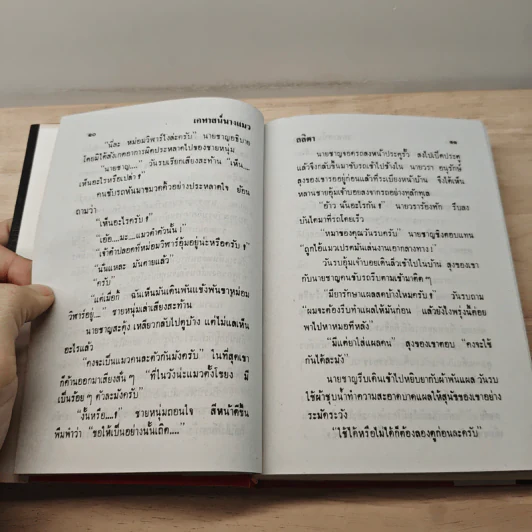 ๒๐
เคหาสน์นางแมว
"นี่ละ หม่อมวิฬาร์ไงล่ะครับ" นายชาญอธิบาย
โดยมิได้สังเกตอาการผิดประหลาดไปของชายหนุ่ม
"นายชาญ...." วันรบเรียกเสียงสะท้าน "เห็น....
เห็นอะไรหรือเปล่า !"
คนขับรถหันมาขมวดคิ้วอย่างประหลาดใจ ย้อน
ถามว่า
"เห็นอะไรครับ !"
"เอ้อ....มะ....แมวดำตัวนั้น !"
"เจ้าดำปลอดที่หม่อมวิฬาร์อุ้มอยู่น่ะหรือครับ !"
"นั่นแหละ มันตายแล้ว"
"ครับ"
"แต่เมื่อกี้ ฉันเห็นมันเดินพันแข้งพันขาหม่อม
วิฬาร์อยู่...." ชายหนุ่มเล่าเสียงสะท้าน
นายชาญสะดุ้ง เหลียวกลับไปดูบ้าง แต่ไม่แลเห็น
อะไรแล้ว
"คงจะเป็นแมวคนละตัวกันมังครับ" ในที่สุดเขา
ก็ค้านออกมาเสียงสั่น ๆ "ที่ในวังน่ะแมวตั้งโขยง มี
เป็นร้อย ๆ ตัวละมังครับ"
"งั้นหรือ....!" ชายหนุ่มถอนใจ สีหน้าดีขึ้น
พึมพำว่า "ขอให้เป็นอย่างนั้นเถิด...."
ลลิตา
๒๑
นายชาญจอดรถลงหน้าประตูรั้ว ลงไปเปิดประตู
แล้วจึงกลับขึ้นมาขับรถเข้าไปข้างใน นายวรา อนุรักษ์
ลุงของเขารออยู่ก่อนแล้วที่ระเบียงหน้าบ้าน จึงได้เห็น
หลานชายอุ้มเจ้าบอยลงจากรถอย่างทุลักทุเล
"อ้าว นั่นอะไรกัน !" นายวราร้องทัก รีบลง
บันไดมาที่รถโดยเร็ว
"หมาของคุณวันรบครับ" นายชาญชิงตอบแทน
"ถูกไอ้แมวเปรตมันเล่นงานเอากลางทาง !"
วันรบอุ้มเจ้าบอยเดินลิ่วเข้าไปในบ้าน ลุงของเขา
กับนายชาญคนขับรถรีบตามเข้ามาติด ๆ
"มียารักษาแผลสดบ้างไหมครับ !" วันรบถาม
"ผมจะต้องรีบทำแผลให้มันก่อน แล้วยังไงพรุ่งนี้ค่อย
พาไปหาหมอทีหลัง"
"มีแต่ยาใส่แผลคน" ลุงของเขาตอบ "คงจะใช้
กันได้ละมัง"
นายชาญรีบเดินเข้าไปหยิบยากับผ้าพันแผล วันรบ
ใช้ผ้าชุบน้ำทำความสะอาดบาดแผลให้สุนัขของเขาอย่าง
ระมัดระวัง
"ใช้ได้หรือไม่ได้ก็ต้องลองดูก่อนละครับ"